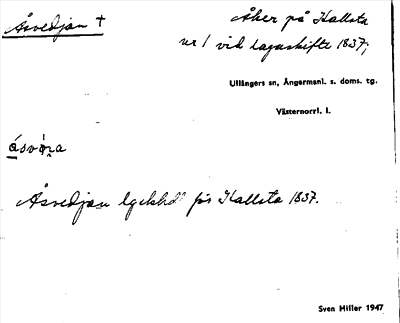 Åsvedjan †
Åker på Kallsta
nr 1 vid lagaskifte 1837;
Ullångers sn, Ångermanl. s. doms. tg.
Västernorrl. l.
Åsvedjan lgskhdl för Kallsta 1837.
Sven Hiller 1947